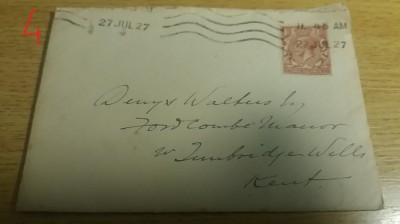 4
27 JUL 27
11. 45 AM
27 JUL 27
Denys Walters Esq
Fordcombe Manor
nr Tunbridge Wells
Kent.